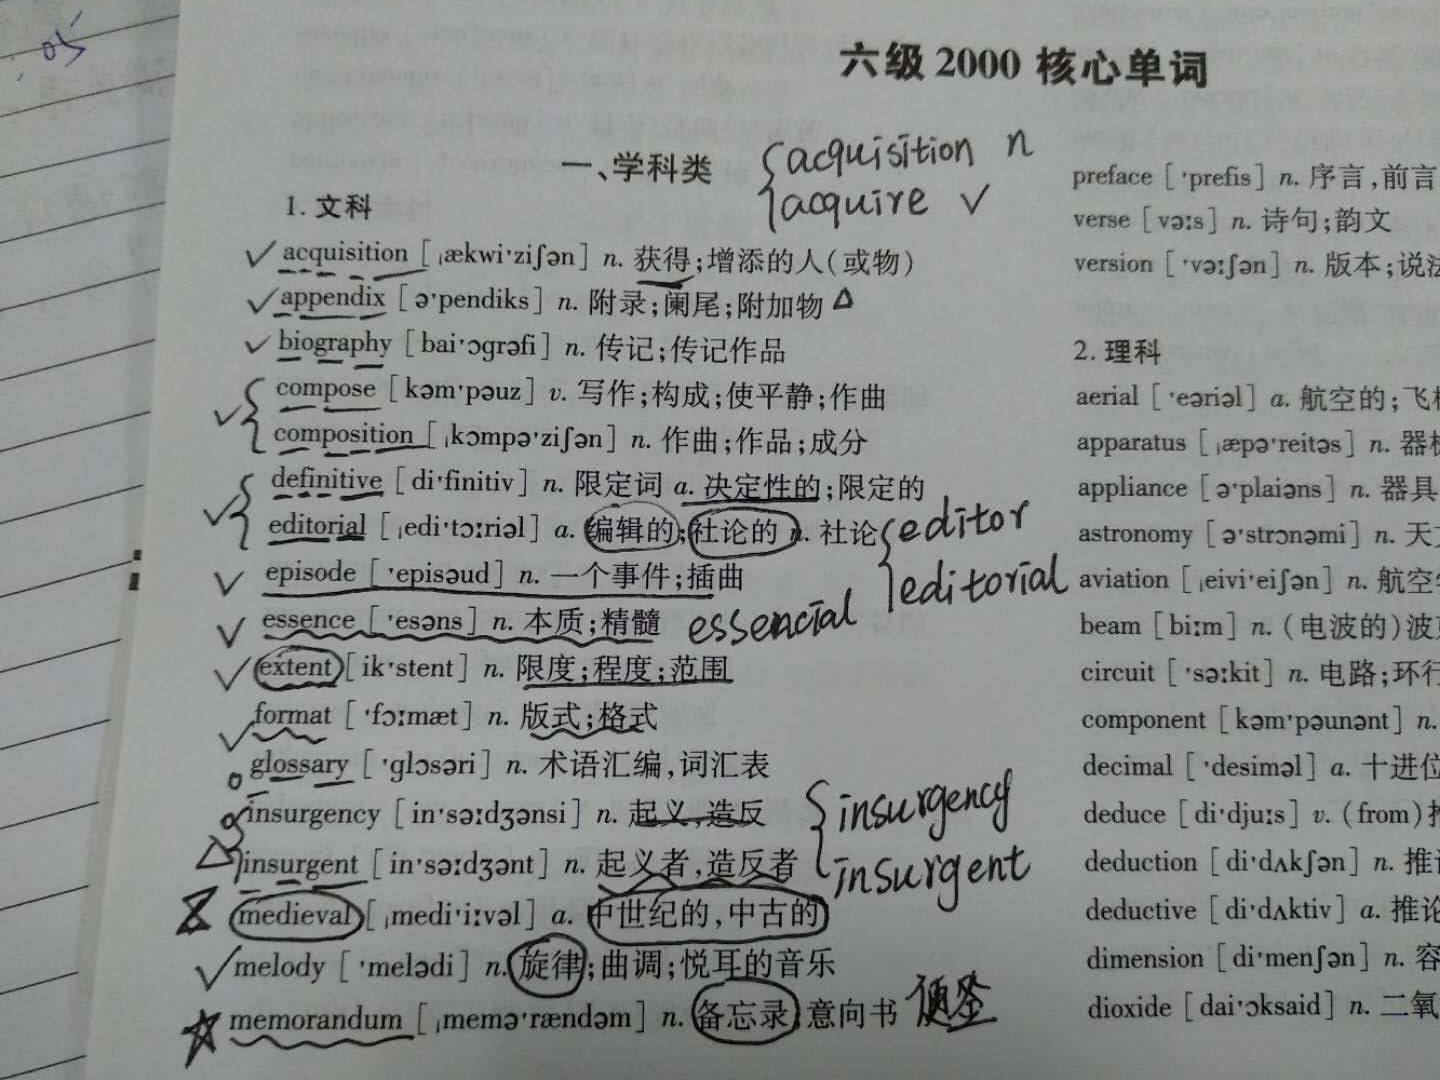 05
六级 2000 核心单词
一、学科类
acquisition n
acquire v
1. 文科
acquisition [ˌækwi'ziʃən] n. 获得;增添的人(或物)
appendix [ə'pendiks] n. 附录;阑尾;附加物
biography [bai'ɔgrəfi] n. 传记;传记作品
compose [kəm'pəuz] v. 写作;构成;使平静;作曲
composition [ˌkɔmpə'ziʃən] n. 作曲;作品;成分
definitive [di'finitiv] n. 限定词 a. 决定性的;限定的
editorial [ˌedi'tɔːriəl] a. 编辑的;社论的 n. 社论
editor
editorial
episode ['episəud] n. 一个事件;插曲
essence ['esəns] n. 本质;精髓 essencial
extent [ik'stent] n. 限度;程度;范围
format ['fɔːmæt] n. 版式;格式
glossary ['glɔsəri] n. 术语汇编,词汇表
insurgency [in'səːdʒənsi] n. 起义,造反
insurgent [in'səːdʒənt] n. 起义者,造反者
insurgency
insurgent
medieval [ˌmedi'iːvəl] a. 中世纪的,中古的
melody ['melədi] n. 旋律;曲调;悦耳的音乐
memorandum [ˌmemə'rændəm] n. 备忘录;意向书 便签
preface ['prefis] n. 序言,前言
verse [vəːs] n. 诗句;韵文
version ['vəːʃən] n. 版本;说法
2. 理科
aerial ['eəriəl] a. 航空的;飞机
apparatus [ˌæpə'reitəs] n. 器械
appliance [ə'plaiəns] n. 器具
astronomy [ə'strɔnəmi] n. 天文
aviation [ˌeivi'eiʃən] n. 航空学
beam [biːm] n. (电波的)波束
circuit ['səːkit] n. 电路;环行
component [kəm'pəunənt] n.
decimal ['desiməl] a. 十进位
deduce [di'djuːs] v. (from)推
deduction [di'dʌkʃən] n. 推论
deductive [di'dʌktiv] a. 推论
dimension [di'menʃən] n. 容
dioxide [dai'ɔksaid] n. 二氧